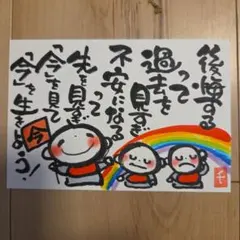 後悔する
って
過去を見すぎ
不安になる
って
先を見すぎ
「今」を見て
「今」を生きよう!
今